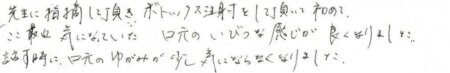 先生に指摘して頂き、ボトックス注射をして頂いて初めて、
ここ最近気になっていた 口元のいびつな感じが良くなりました。
話す時に、口元のゆがみが少し気にならなくなりました。